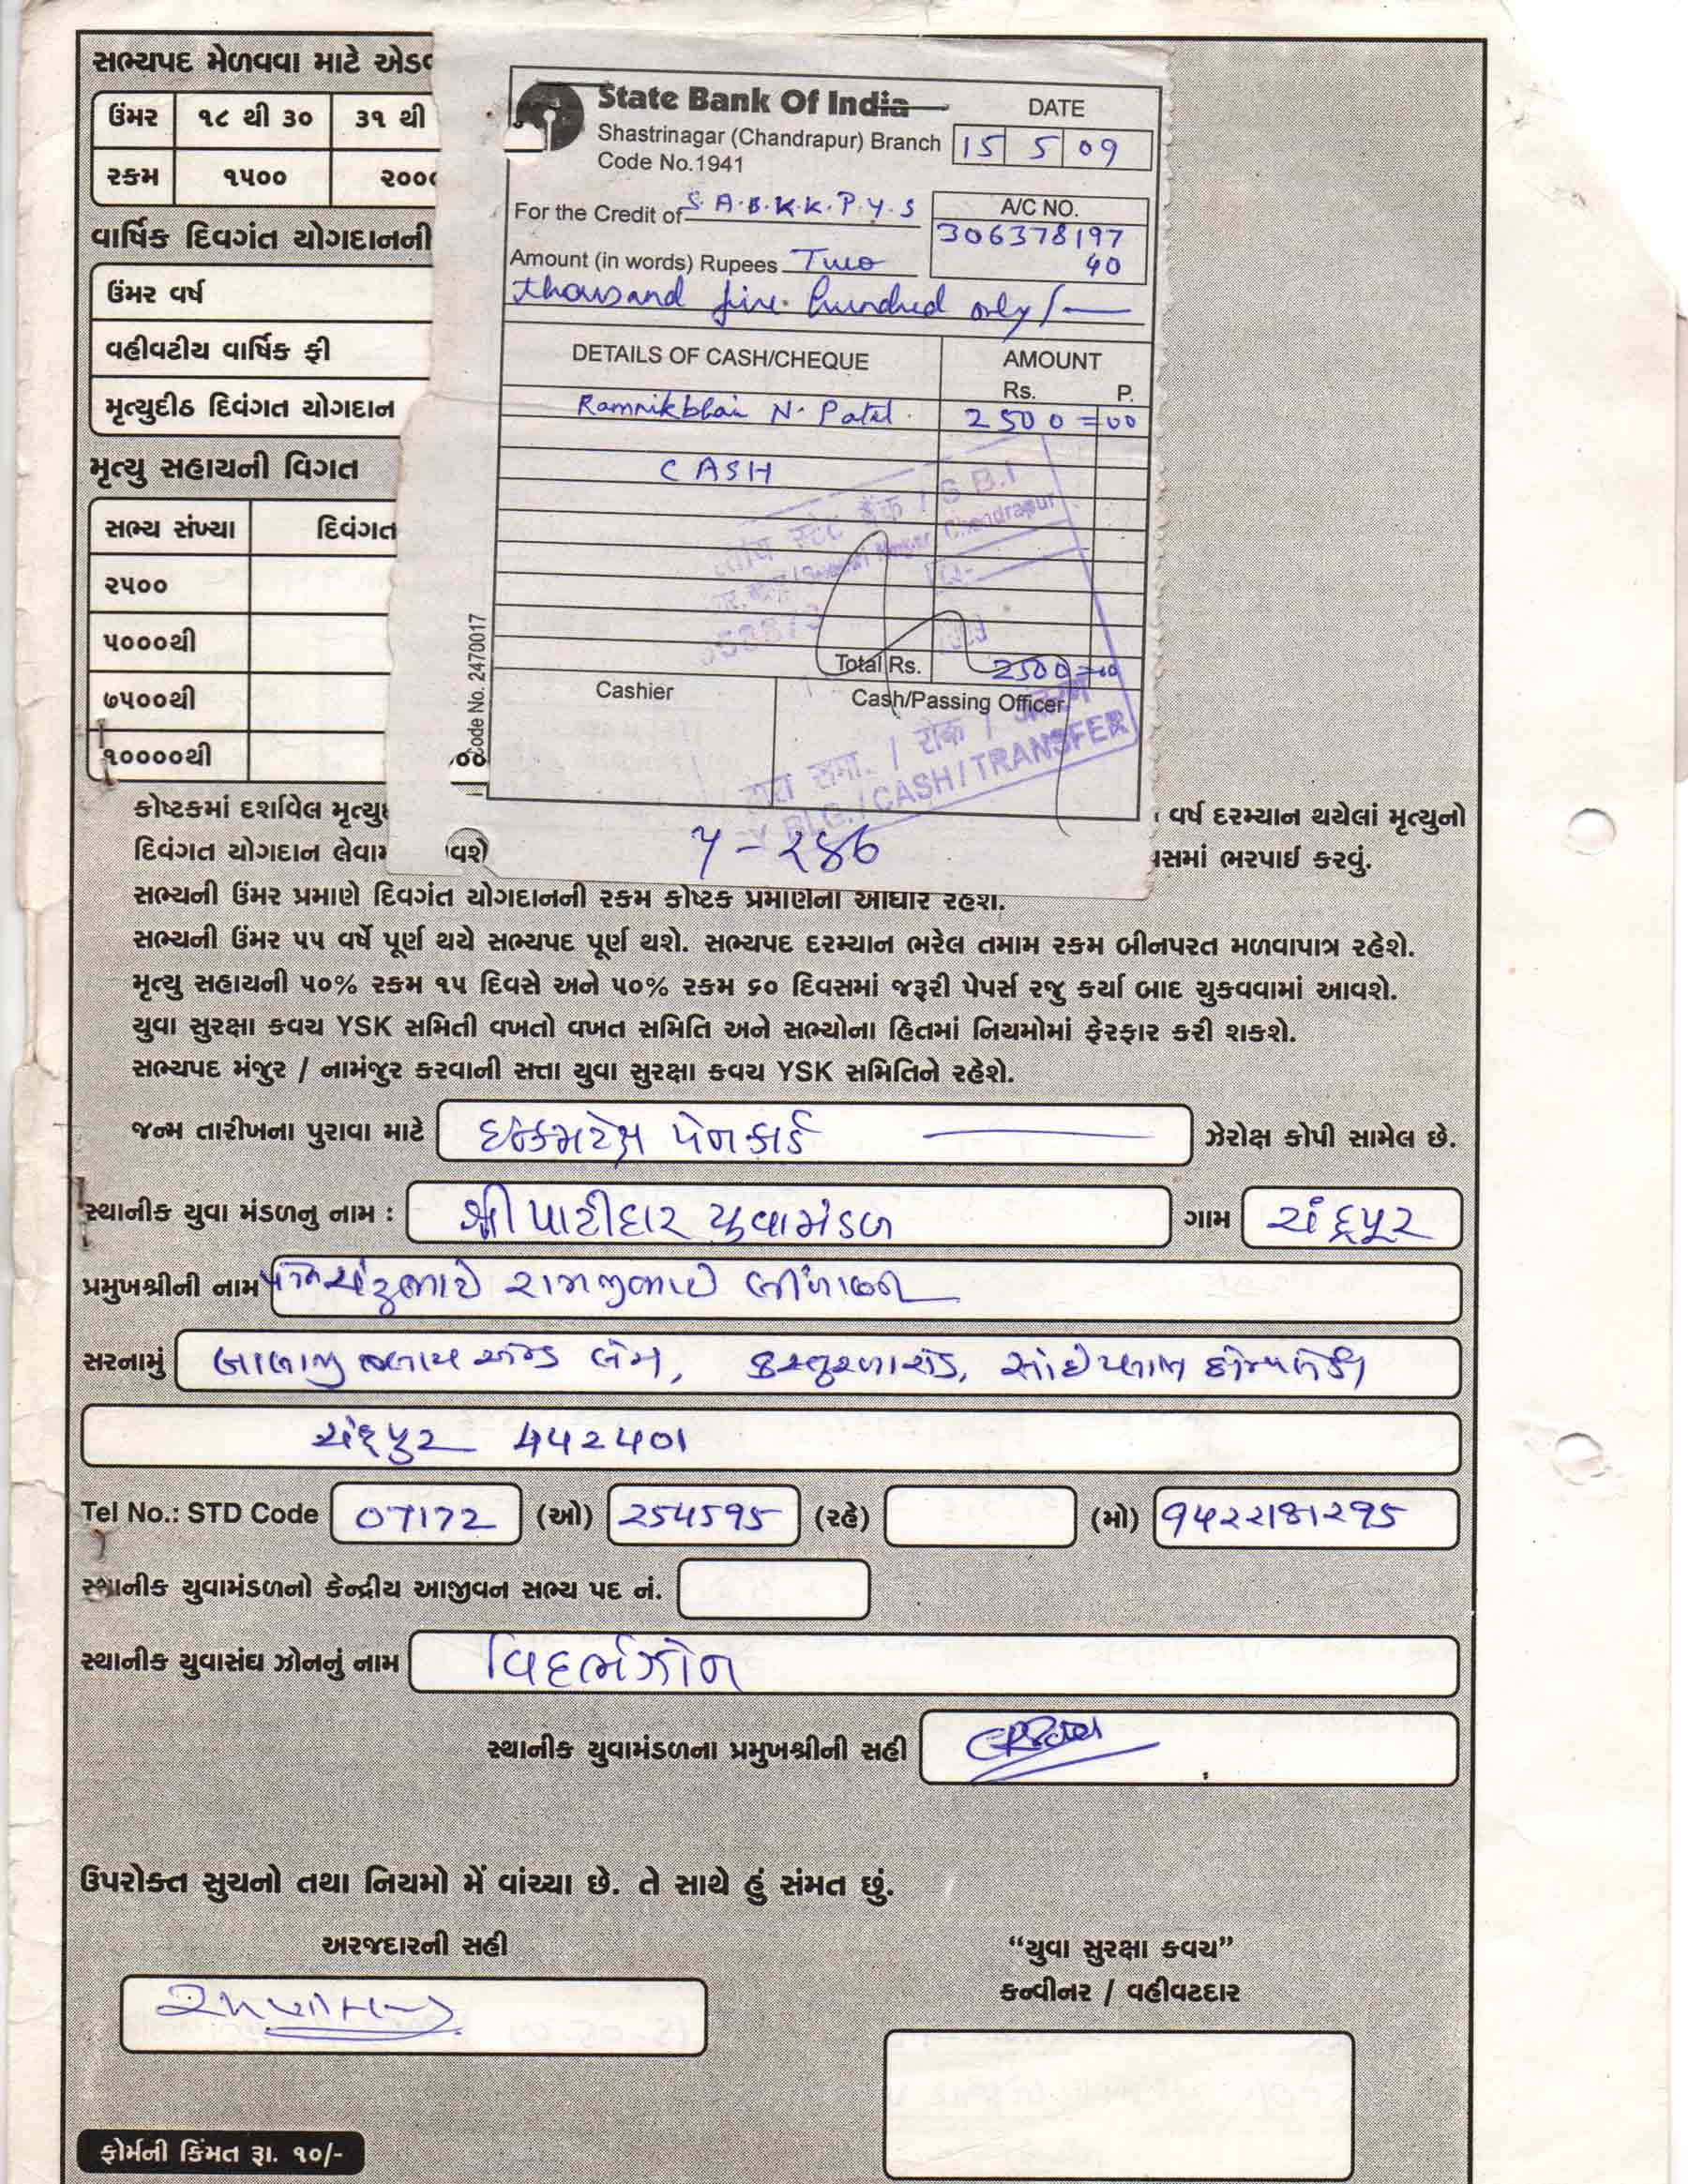 સભ્યપદ મેળવવા માટે એડ
ઉંમર ૧૮ થી ૩૦ ૩૧ થી
રકમ ૧૫૦૦ ૨૦૦૦
વાર્ષિક દિવગંત યોગદાનની
ઉંમર વર્ષ
વહીવટીય વાર્ષિક ફી
મૃત્યુદીઠ દિવંગત યોગદાન
મૃત્યુ સહાયની વિગત
સભ્ય સંખ્યા દિવંગત
૨૫૦૦
૫૦૦૦થી
૭૫૦૦થી
૧૦૦૦૦થી
State Bank Of India
Shastrinagar (Chandrapur) Branch
Code No.1941
DATE
15 5 09
For the Credit of S.A.B.K.K.P.Y.S
A/C NO.
306378197
40
Amount (in words) Rupees Two
thousand five hundred only/—
DETAILS OF CASH/CHEQUE AMOUNT
Rs. P.
Ramnikbhai N. Patel. 2500=00
CASH
Total Rs. 2500=00
Cashier Cash/Passing Officer
CASH / TRANSFER
Code No. 2470017
૫-૨૪૬
કોષ્ટકમાં દર્શાવેલ મૃત્યુ વર્ષ દરમ્યાન થયેલાં મૃત્યુનો
દિવંગત યોગદાન લેવામ વશે સમાં ભરપાઈ કરવું.
સભ્યની ઉંમર પ્રમાણે દિવગંત યોગદાનની રકમ કોષ્ટક પ્રમાણેના આધાર રહેશે.
સભ્યની ઉંમર ૫૫ વર્ષે પૂર્ણ થયે સભ્યપદ પૂર્ણ થશે. સભ્યપદ દરમ્યાન ભરેલ તમામ રકમ બીનપરત મળવાપાત્ર રહેશે.
મૃત્યુ સહાયની ૫૦% રકમ ૧૫ દિવસે અને ૫૦% રકમ ૬૦ દિવસમાં જરૂરી પેપર્સ રજુ કર્યા બાદ ચુકવવામાં આવશે.
યુવા સુરક્ષા કવચ YSK સમિતી વખતો વખત સમિતિ અને સભ્યોના હિતમાં નિયમોમાં ફેરફાર કરી શકશે.
સભ્યપદ મંજુર / નામંજુર કરવાની સત્તા યુવા સુરક્ષા કવચ YSK સમિતિને રહેશે.
જન્મ તારીખના પુરાવા માટે ઈન્કમટેક્ષ પેનકાર્ડ ઝેરોક્ષ કોપી સામેલ છે.
સ્થાનીક યુવા મંડળનુ નામ : શ્રી પાટીદાર યુવામંડળ ગામ ચંદ્રપુર
પ્રમુખશ્રીની નામ ચંદુભાઈ રામજીભાઈ લીંબાણી
સરનામું બાલાજી એન્ડ કસ્તુરબા રોડ,
ચંદ્રપુર 442401
Tel No.: STD Code 07172 (ઓ) 254595 (રહે) (મો) 9422181295
સ્થાનીક યુવામંડળનો કેન્દ્રીય આજીવન સભ્ય પદ નં.
સ્થાનીક યુવાસંઘ ઝોનનું નામ વિદર્ભઝોન
સ્થાનીક યુવામંડળના પ્રમુખશ્રીની સહી
ઉપરોક્ત સુચનો તથા નિયમો મેં વાંચ્યા છે. તે સાથે હું સંમત છું.
અરજદારની સહી
“યુવા સુરક્ષા કવચ”
કન્વીનર / વહીવટદાર
ફોર્મની કિંમત રૂા. ૧૦/-